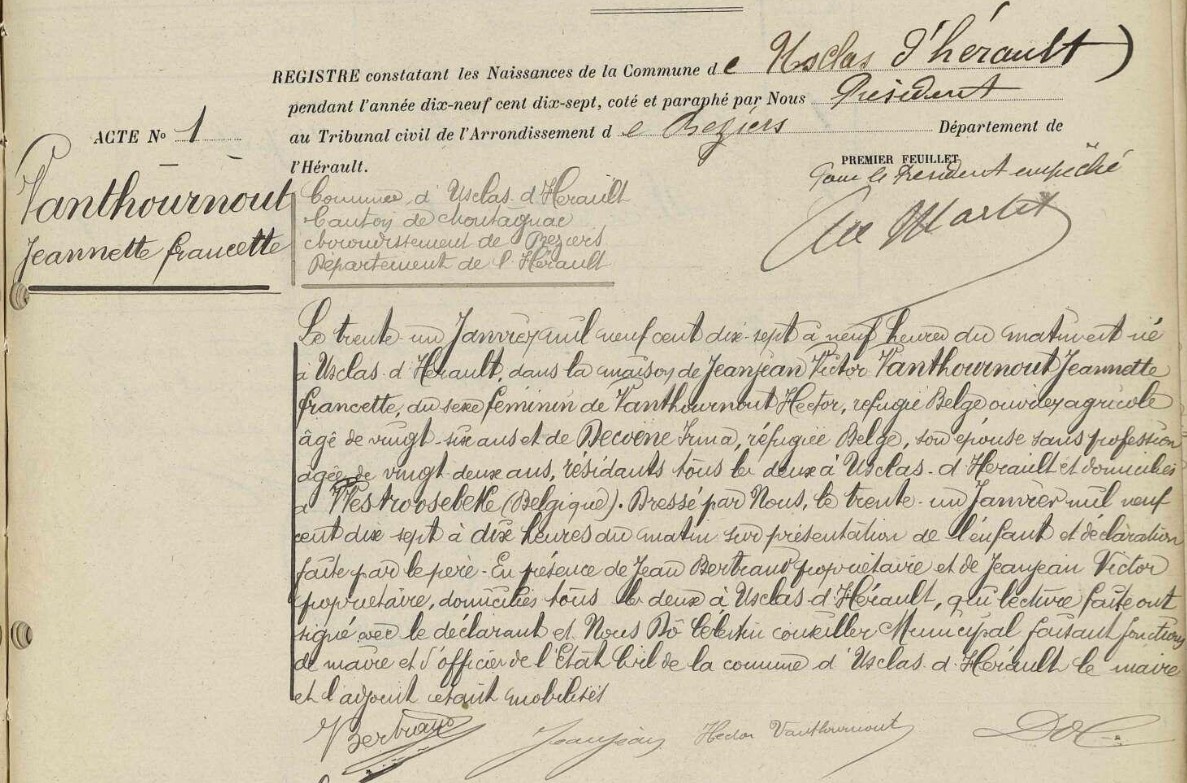 REGISTRE constatant les Naissances de la Commune de Usclas d'hérault)
pendant l'année dix-neuf cent dix-sept, coté et paraphé par Nous Président
ACTE No 1
au Tribunal civil de l'Arrondissement de Beziers Département de
l'Hérault.
PREMIER FEUILLET
Pour le Président empêché
Vanthournout
Jeannette francette
Commune d'Usclas d'Hérault
Canton de Montagnac
Arrondissement de Beziers
Département de l'Hérault
Le trente un Janvier mil neuf cent dix-sept à neuf heures du matin est né
à Usclas d'Hérault, dans la maison de Jeanjean Victor Vanthournout Jeannette
francette, du sexe féminin de Vanthournout Hector, réfugié Belge ouvrier agricole
âgé de vingt six ans et de Decoene Irma, réfugiée Belge, son épouse sans profession
agée de vingt deux ans, résidants tous les deux à Usclas-d'Hérault et domiciliés
à Westroosebeke (Belgique). Dressé par Nous, le trente-un Janvier mil neuf
cent dix sept à dix heures du matin sur présentation de l'enfant et déclaration
faite par le père - En présence de Jean Bertrand propriétaire et de Jeanjean Victor
propriétaire, domiciliés tous les deux à Usclas-d'Hérault, qui lecture faite ont
signé avec le déclarant et Nous Bô Celestin conseiller Municipal faisant fonctions
de maire et d'officier de l'Etat Civil de la commune d'Usclas-d'Hérault le maire
et l'adjoint etant mobilisés
Bertrand Jeanjean Hector Vanthournout